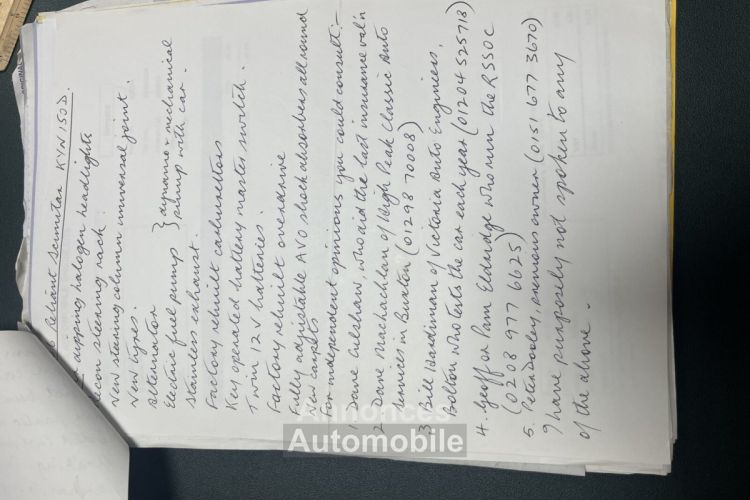 Reliant Scimitar KYN 150D.
dipping halogen headlights
Recon steering rack.
New steering column universal joint.
New tyres.
Alternator
Electric fuel pump } dynamo & mechanical pump with car.
Stainless exhaust.
Factory rebuilt carburettors
Key operated battery master switch.
Twin 12V batteries.
Factory rebuilt overdrive
Fully adjustable AVO shock absorbers all round
New carpets
For independent opinions you could consult:-
1. Dave Culshaw, who did the last insurance val'n
2 Dave Machachlan of High Peak Classic Auto
Services in Buxton (01298 70008)
3 Bill Hardiman of Victoria Auto Engineers,
Bolton who tests the car each year (01204 525718)
4. Geoff or Pam Eldridge who run the RSSOC
(0208 977 6625)
5. Peter Dooley, previous owner (0151 677 3670)
I have purposely not spoken to any
of the above.
Annonces
Automobile